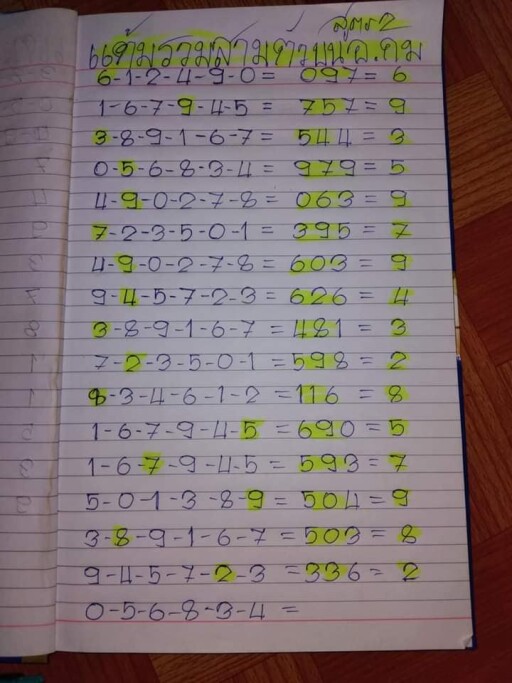 สูตร2
แต้มรวมสามตัวบนอ.ถม
6-1-2-4-9-0 = 097 = 6
1-6-7-9-4-5 = 757 = 9
3-8-9-1-6-7 = 544 = 3
0-5-6-8-3-4 = 979 = 5
4-9-0-2-7-8 = 063 = 9
7-2-3-5-0-1 = 395 = 7
4-9-0-2-7-8 = 603 = 9
9-4-5-7-2-3 = 626 = 4
3-8-9-1-6-7 = 481 = 3
7-2-3-5-0-1 = 598 = 2
8-3-4-6-1-2 = 116 = 8
1-6-7-9-4-5 = 690 = 5
1-6-7-9-4-5 = 593 = 7
5-0-1-3-8-9 = 504 = 9
3-8-9-1-6-7 = 503 = 8
9-4-5-7-2-3 = 336 = 2
0-5-6-8-3-4 =